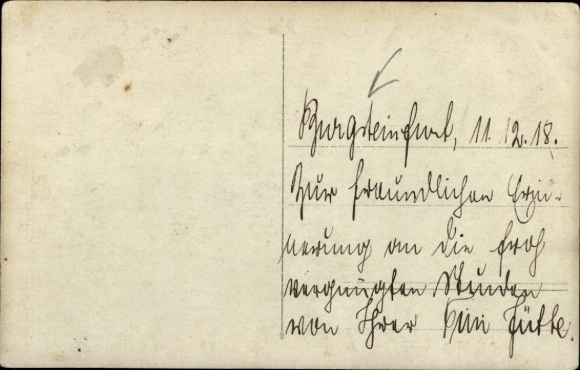 Burgsteinfurt, 11.12.18.
Zur freundlichen Erin-
nerung an die froh
vergnügten Stunden
von Ihrer